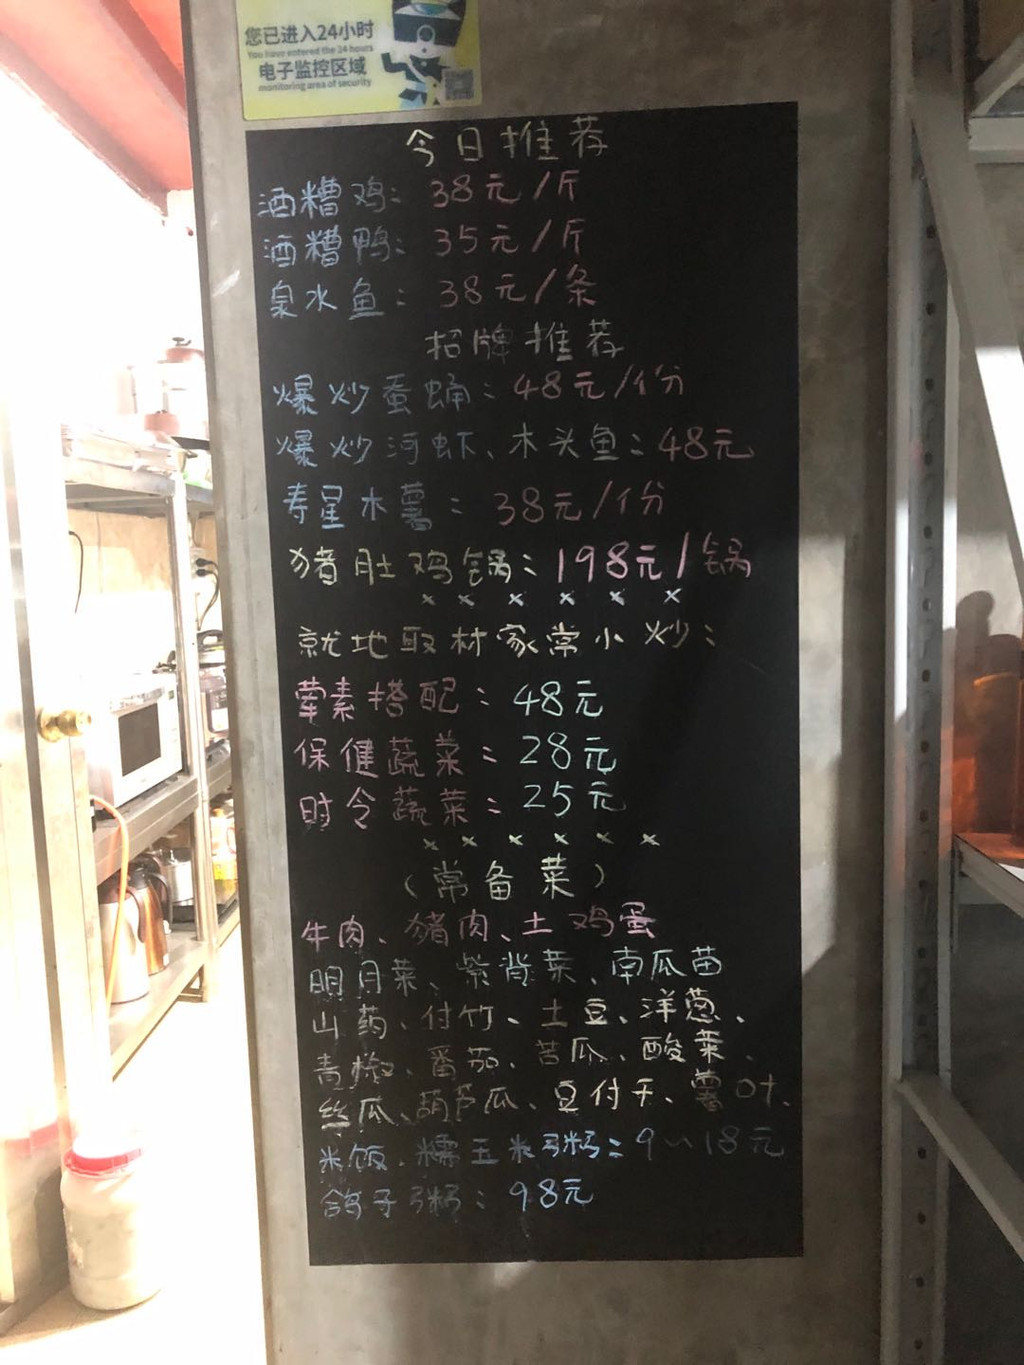 您已进入24小时
You have entered the 24 hours
电子监控区域
monitoring area of security
今日推荐
酒糟鸡：38元/斤
酒糟鸭：35元/斤
泉水鱼：38元/条
招牌推荐
爆炒蚕蛹：48元/份
爆炒河虾、木头鱼：48元
寿星木薯：38元/份
猪肚鸡锅：198元/锅
× × × × × ×
就地取材家常小炒：
荤素搭配：48元
保健蔬菜：28元
时令蔬菜：25元
× × × × × ×
（常备菜）
牛肉、猪肉、土鸡蛋
明月菜、紫背菜、南瓜苗
山药、付竹、土豆、洋葱、
青椒、番茄、苦瓜、酸菜、
丝瓜、葫芦瓜、豆付干、薯叶、
米饭、糯玉米粥：9~18元
鸽子粥：98元